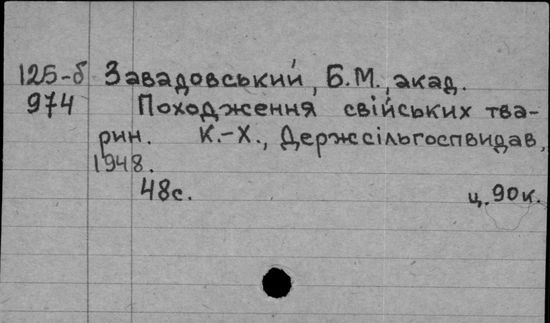 125-б Завадовський, Б.М., акад.
974 Походження свійських тва-
рин. К.-Х., Держсільгоспвидав,
1948.
48с. ц. 90к.